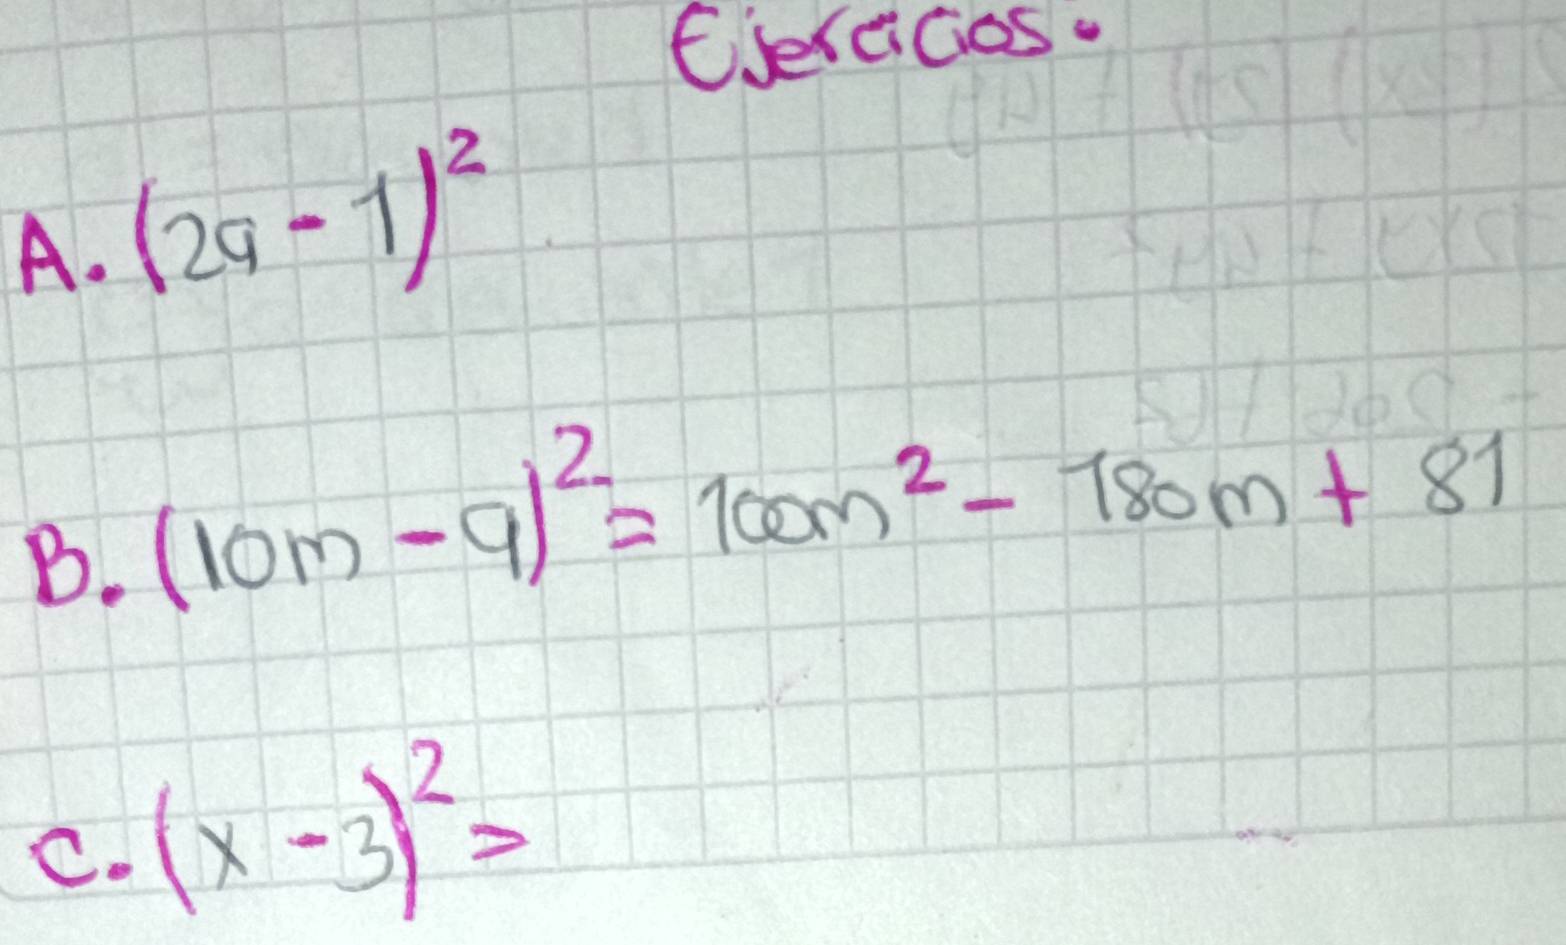 Ejercicios.
A. (2a - 1)²
B. (10m - 9)² = 100m² - 180m + 81
C. (x - 3)² =